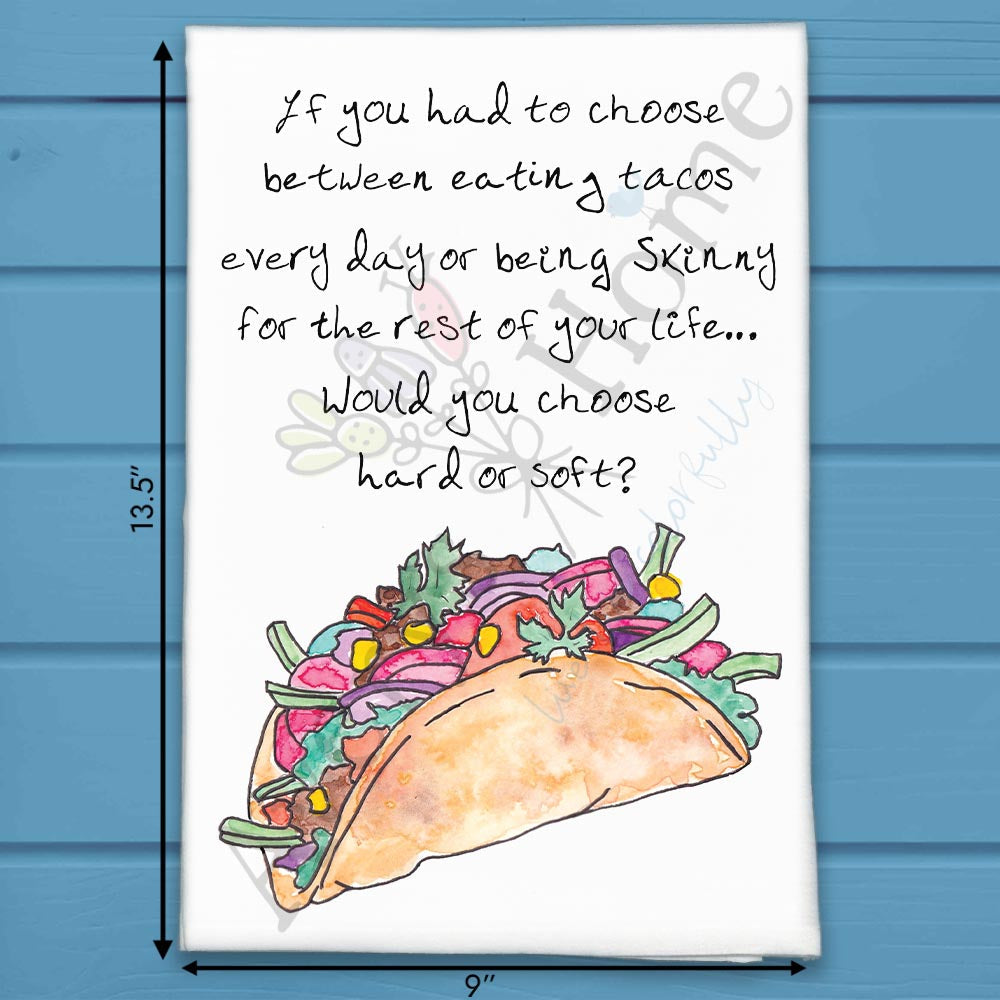 If you had to choose
between eating tacos
every day or being Skinny
for the rest of your life...
Would you choose
hard or soft?
13.5”
9”
Home